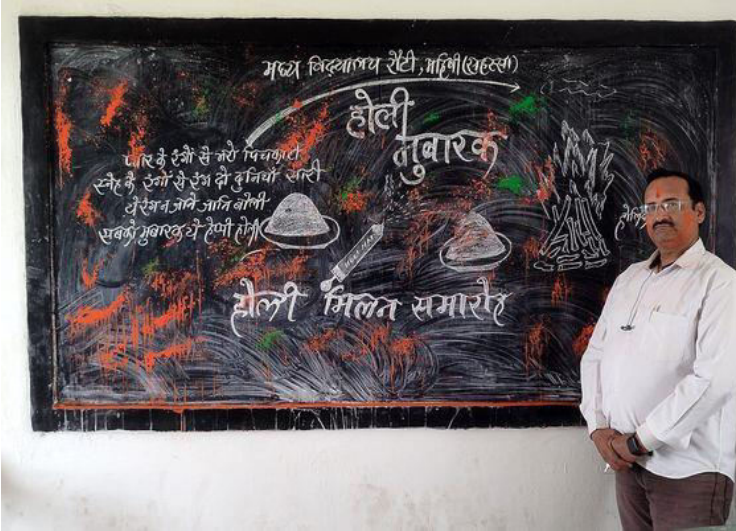 मध्य विद्यालय रौटी, महिषी (सहरसा)
होली
मुबारक
प्यार के रंगों से भरो पिचकारी
स्नेह के रंगों से रंग दो दुनियाँ सारी
ये रंग न जाने जाति न बोली
सबको मुबारक ये हैप्पी होली
होली मिलन समारोह